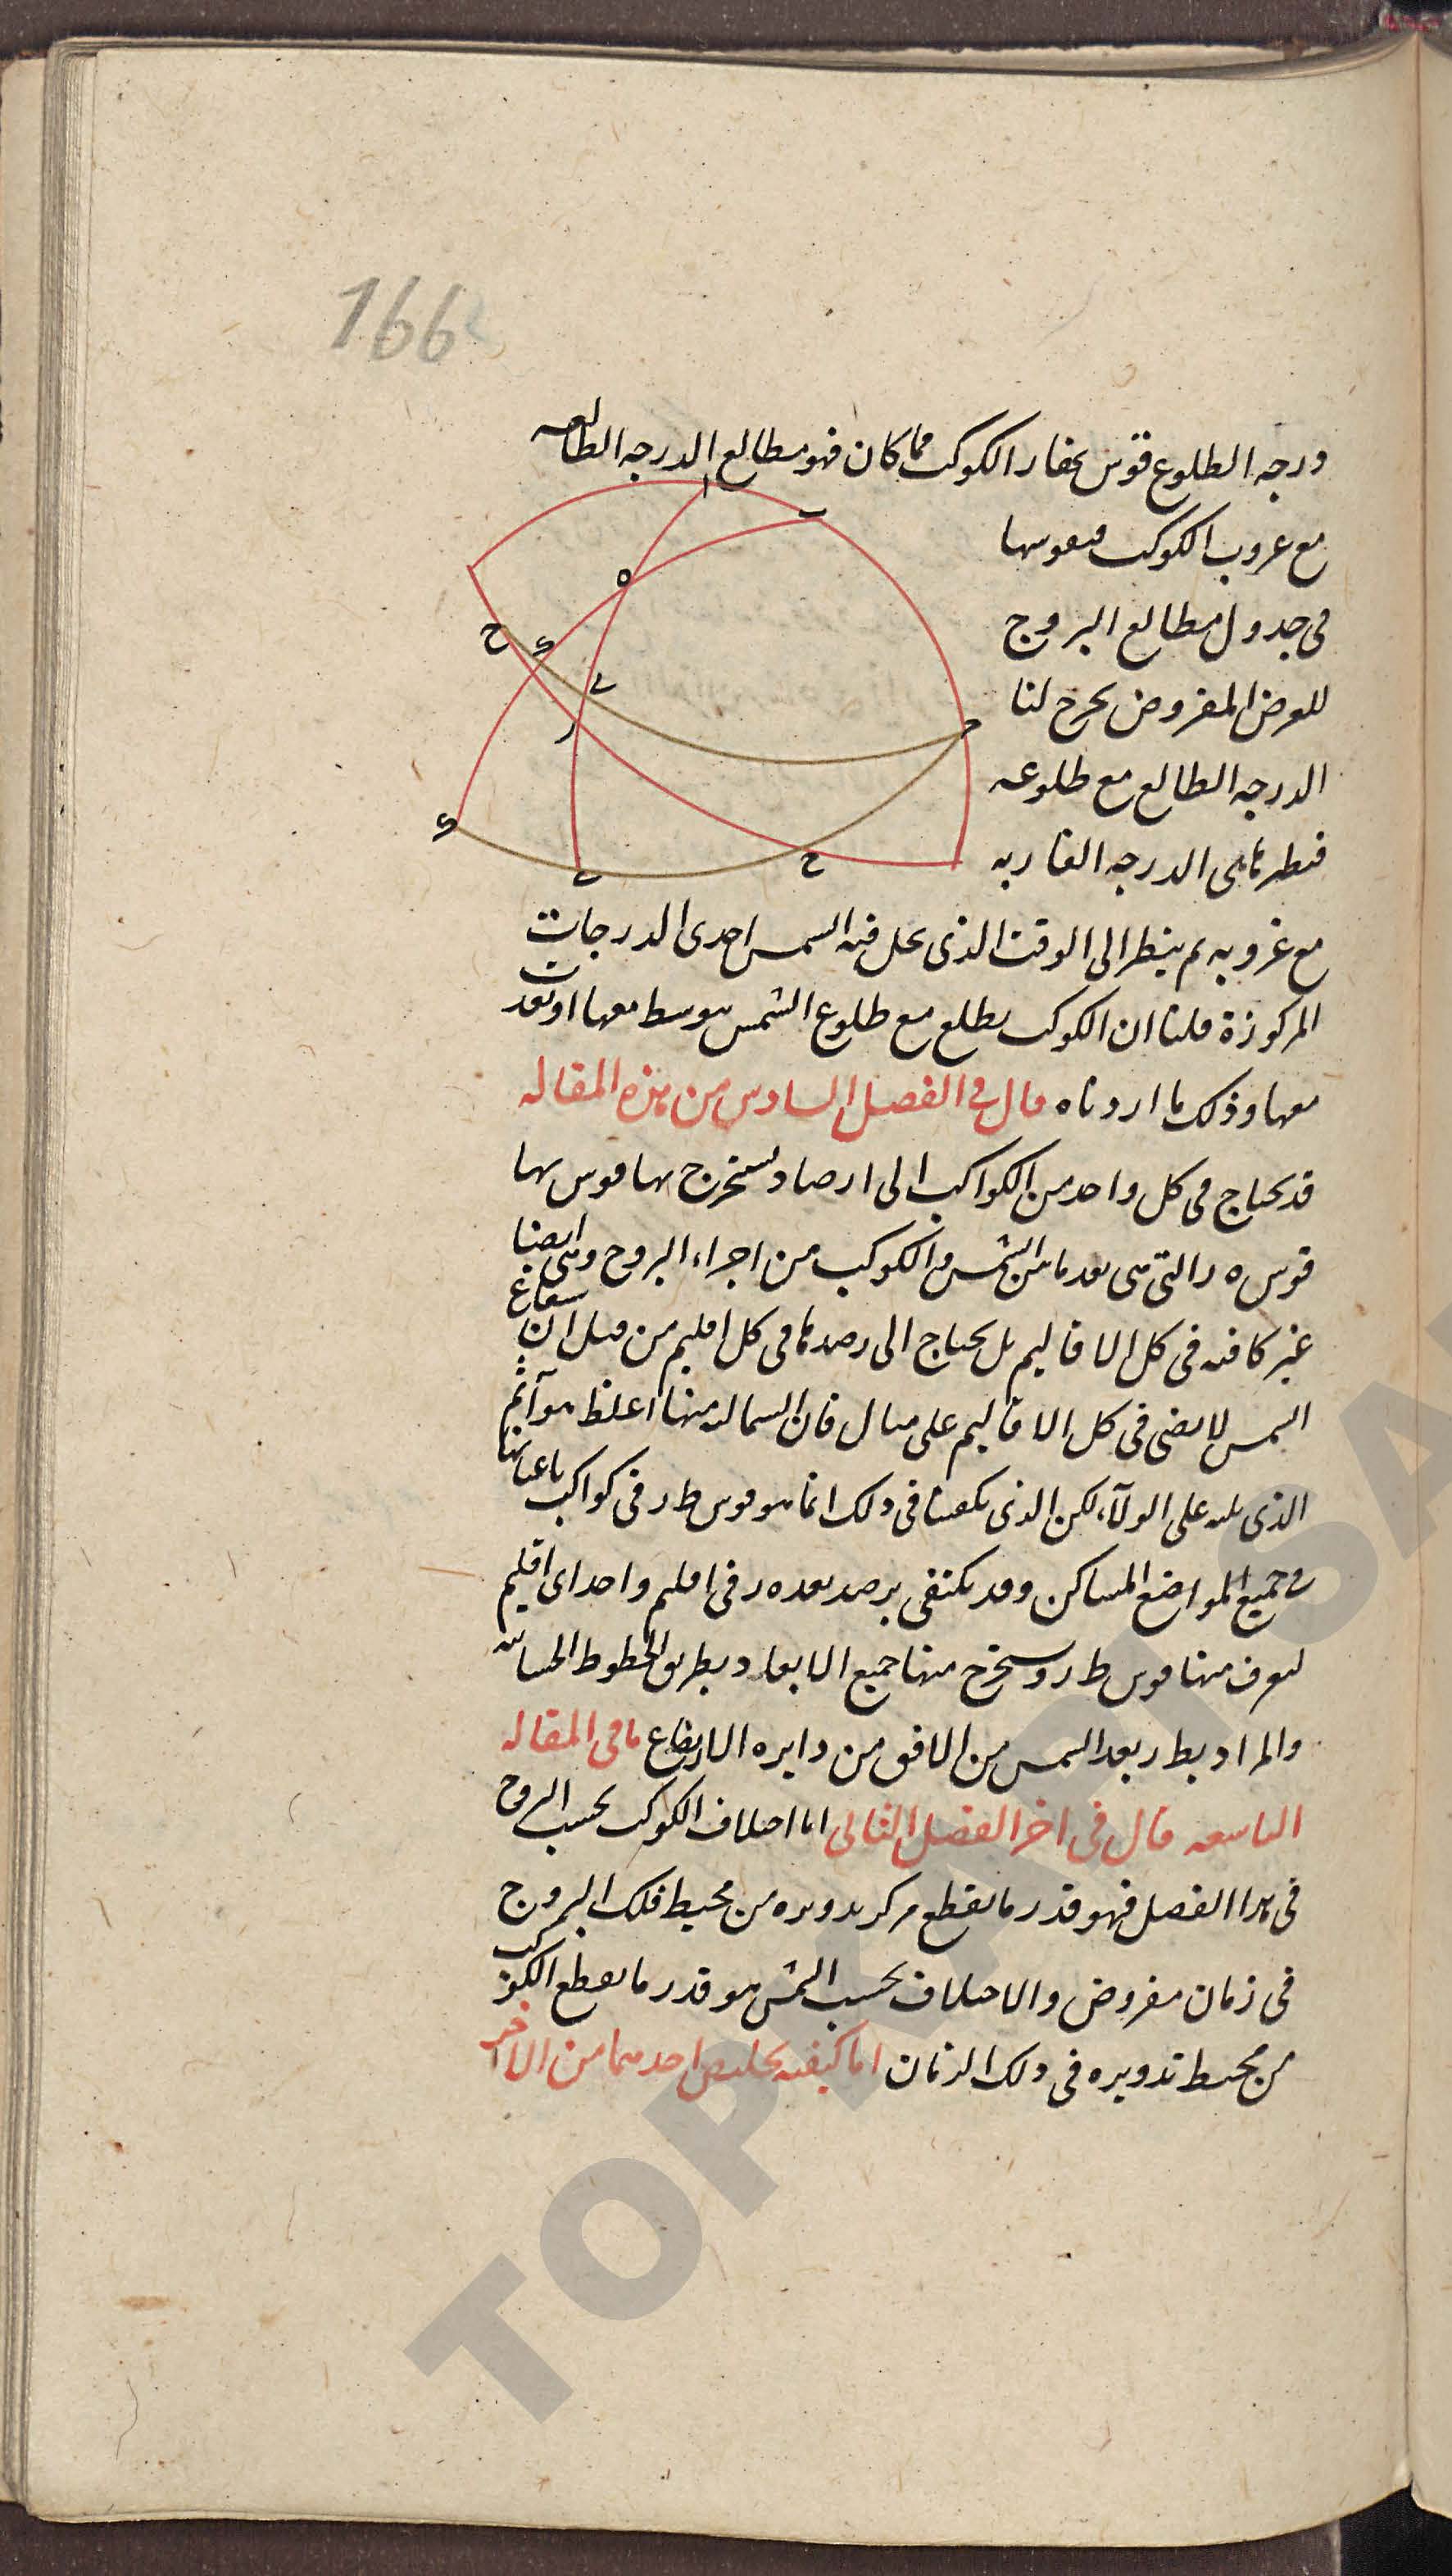 166
ودرجه الطلوع قوس محفار الكوكب فما كان فهو مطالع الدرجه الطالعه
ا
ب
مع غروب الكوكب فنقوسها
ه
فى جدول مطالع البروج
ح
ى
للعرض المفروض يخرج لنا
ل
ر
ح
الدرجه الطالع مع طلوعه
ى
ل
ح
فنظيرتها هى الدرجه الغاربه
مع غروبه ثم ينظر الى الوقت الذى تحل فيه الشمس احدى الدرجات
المركوزة قلنا ان الكوكب يطلع مع طلوع الشمس يتوسط معها او يغرب
معها وذلك ما اردناه قال فى الفصل السادس من هذه المقاله
قد يحتاج فى كل واحد من الكواكب الى ارصاد يستخرج بها قوس بها
قوس ه ر التى هى بعد ما بين الشمس والكوكب من اجزاء البروج وهى ايضا
غير كافيه فى كل الاقاليم بل يحتاج الى رصدها فى كل اقليم من قبل ان شعاع
الشمس لا يضى فى كل الاقاليم على مثال فان الشماليه منها اغلظ هواً ثم
الذى يليه على الولآء لكن الذى يكفينا فى ذلك انما هو قوس ط ر فى كواكب باعيانها
فى جميع المواضع المساكن وقد يكتفى برصد بعد ه ر فى اقليم واحد اى اقليم
ليعرف منها قوس ط ر ويستخرج منها جميع الابعاد بطريق الخطوط الحسابيه
والمراد بط ر بعد الشمس من الافق من دايره الارتفاع ما فى المقاله
التاسعه قال فى اخر الفصل الثانى اما اختلاف الكوكب بحسب البروج
فى هذا الفصل فهو قدر ما يقطع مركز تدويره من محيط فلك البروج
فى زمان مفروض والاختلاف بحسب الشمس هو قدر ما يقطع الكوكب
من محيط تدويره فى ذلك الزمان اما كيفيه تخليص احدهما من الاخر
TOPKAPI SA